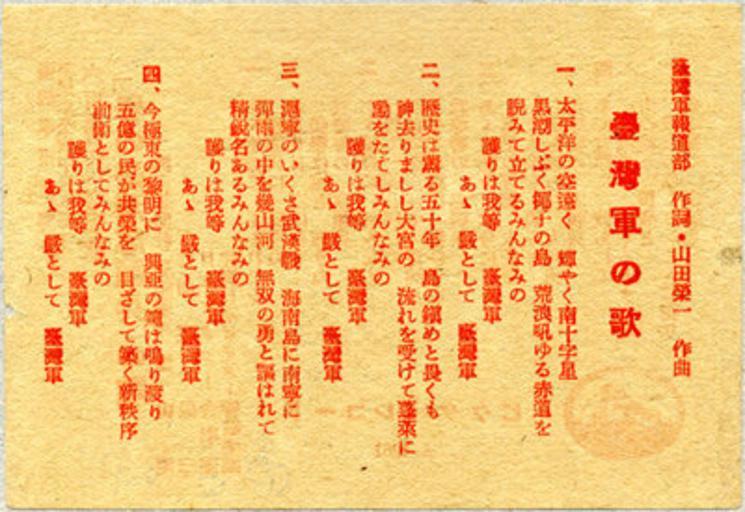 臺灣軍報道部　作詞・山田榮一　作曲
臺灣軍の歌
一、太平洋の空遠く　輝やく南十字星
黒潮しぶく椰子の島　荒浪吼ゆる赤道を
睨みて立てるみんなみの
護りは我等　臺灣軍
あゝ　嚴として　臺灣軍
二、歴史は薫る五十年　島の鎭めと畏くも
神去りましし大宮の　流れを受けて蓬萊に
勳をたてしみんなみの
護りは我等　臺灣軍
あゝ　嚴として　臺灣軍
三、滬寧のいくさ武漢戰　海南島に南寧に
彈雨の中を幾山河　無双の勇と謳はれて
精鋭名あるみんなみの
護りは我等　臺灣軍
あゝ　嚴として　臺灣軍
四、今極東の黎明に　興亞の鐘は鳴り渡り
五億の民が共榮を　目ざして築く新秩序
前衛としてみんなみの
護りは我等　臺灣軍
あゝ　嚴として　臺灣軍